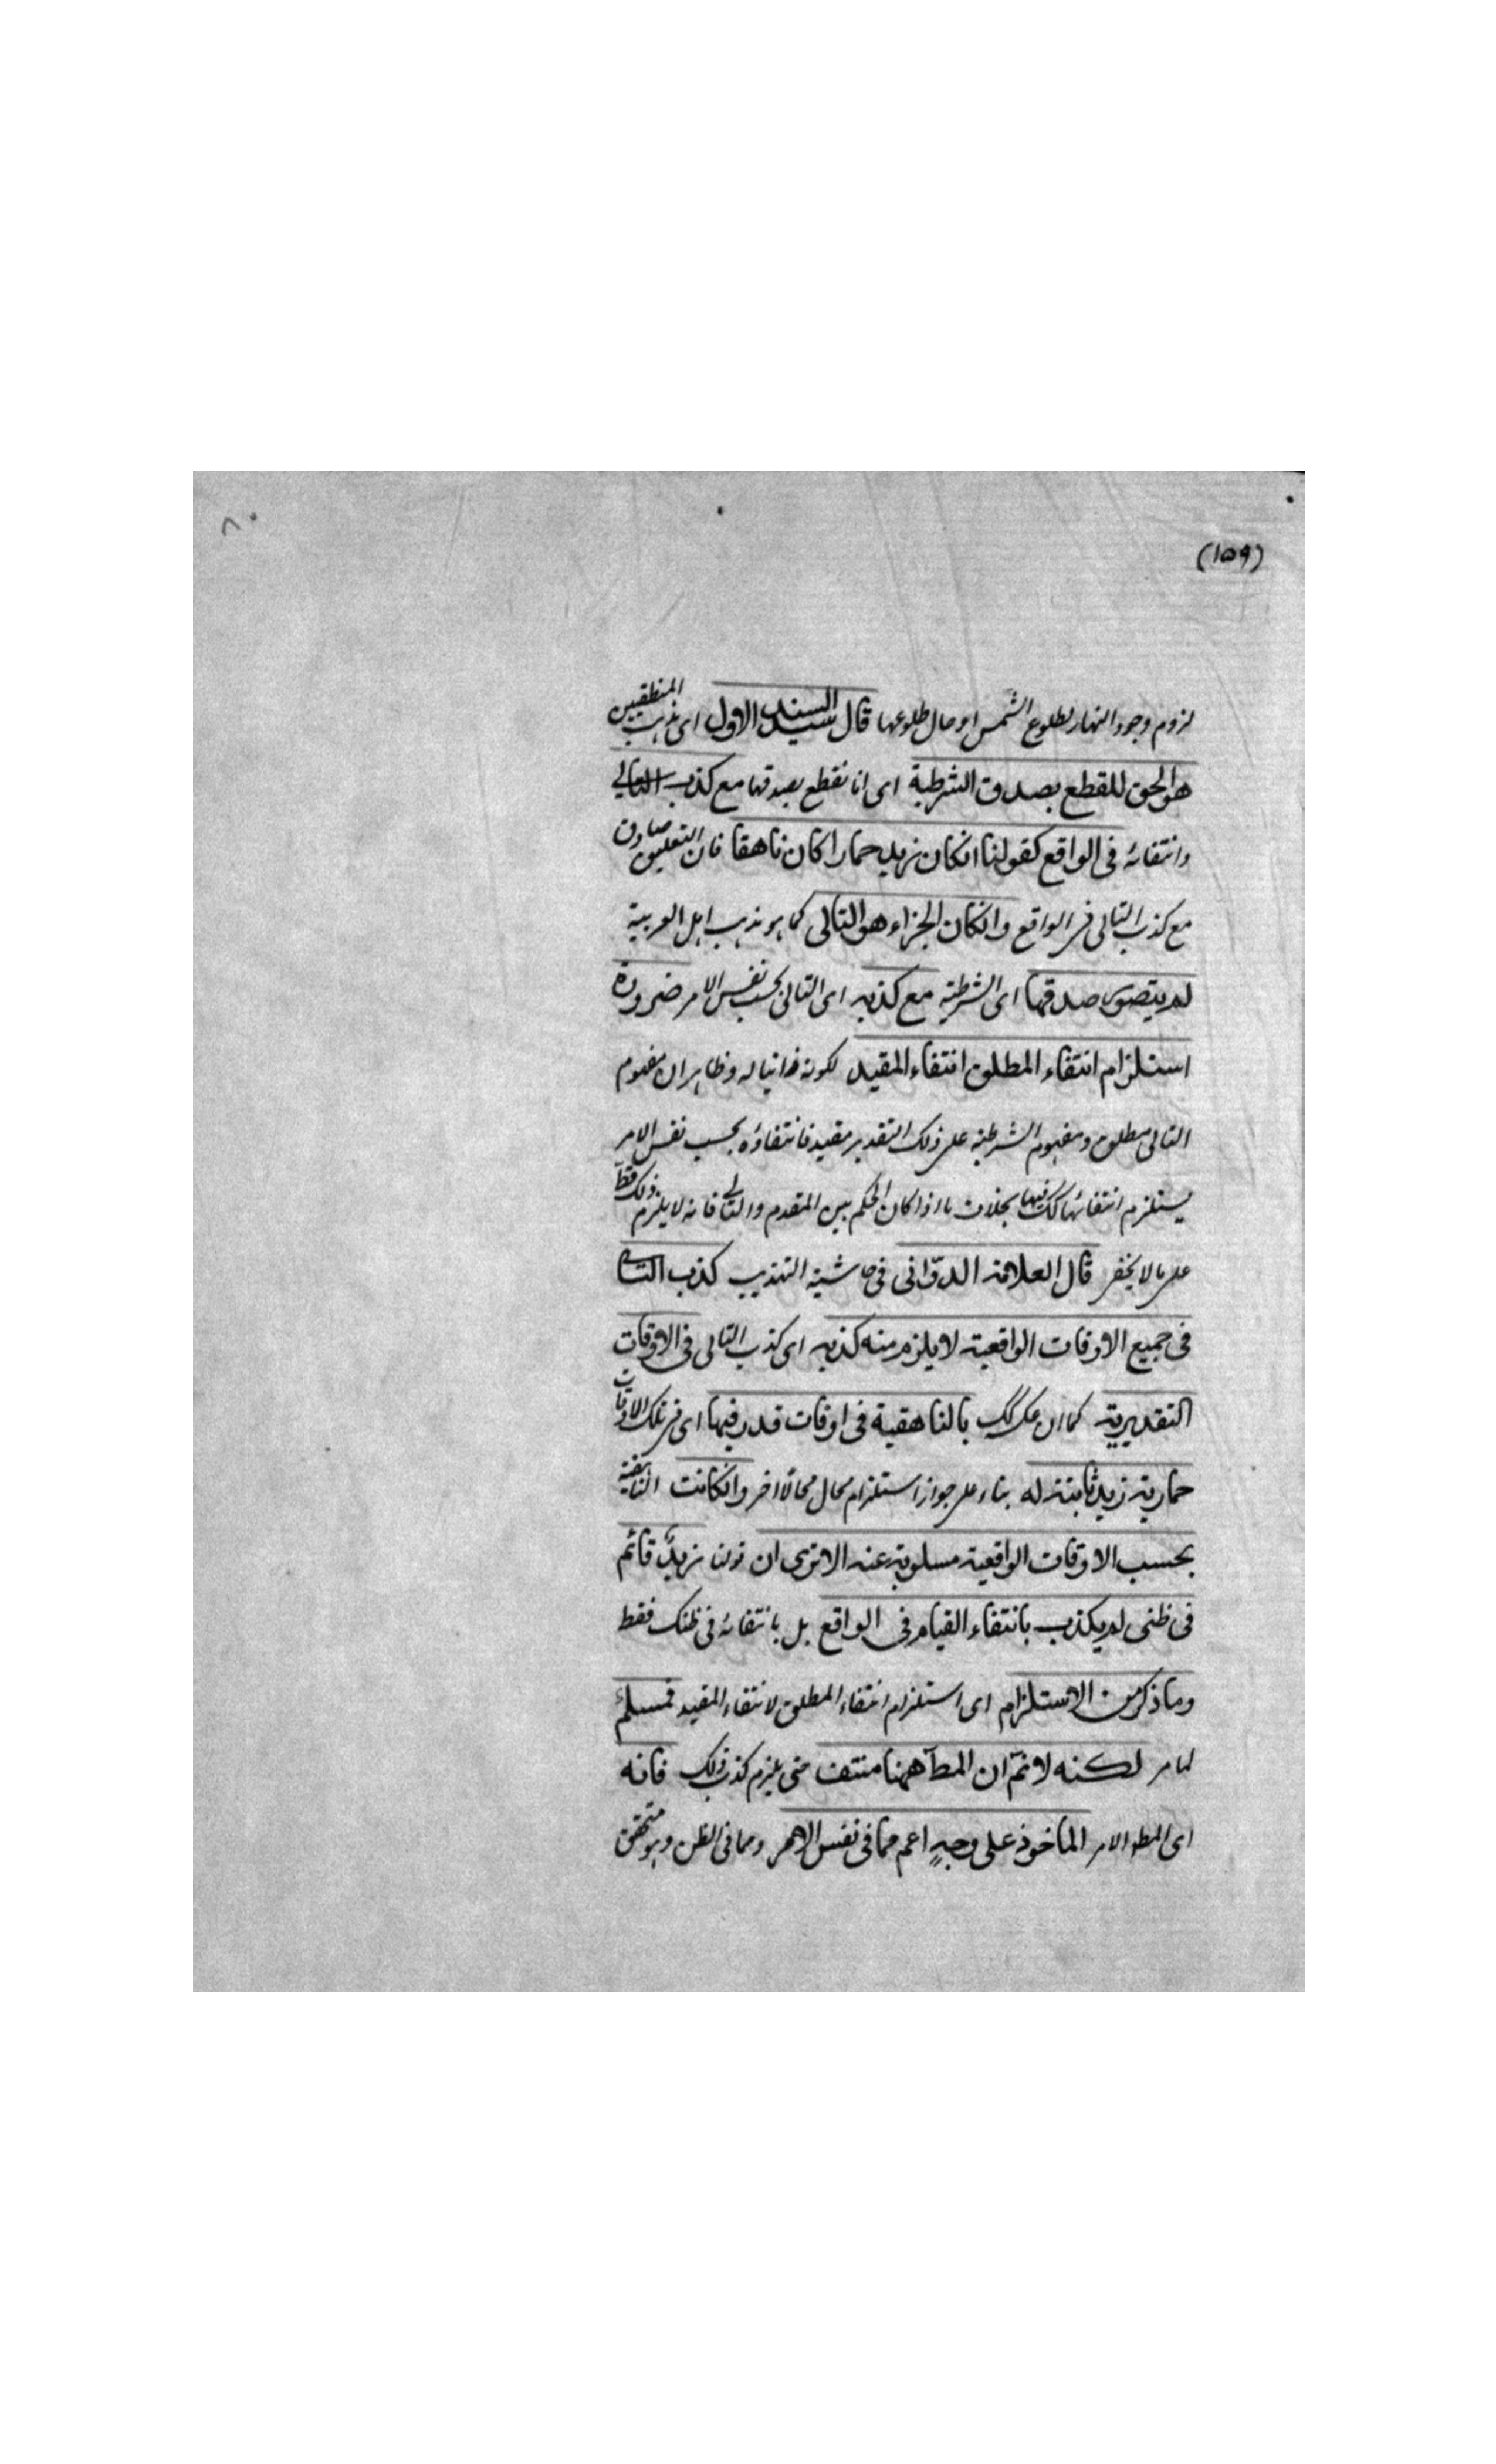 ٨٠
(١٥٩)
لزوم وجود النهار لطلوع الشمس او حال طلوعها قال السيد السند الاول اى مذهب المنطقيين
هو الحق للقطع بصدق الشرطية اى انا نقطع بصدقها مع كذب التالي
وانتفائه فى الواقع كقولنا انكان زيد حمارا كان ناهقا فان التعليق صادق
مع كذب التالى فى الواقع وانكان الجزاء هو التالى كما هو مذهب اهل العربية
لم يتصور صدقها اى الشرطية مع كذبه اى التالى بحسب نفس الامر ضرورة
استلزام انتفاء المطلق انتفاء المقيد لكونه ذاتيا له وظاهر ان مفهوم
التالى مطلق ومفهوم الشرطية على ذلك التقدير مقيد فانتفاؤه بحسب نفس الامر
يستلزم انتفائها كك فيها بخلاف ما اذا كان الحكم بين المقدم والتالي فانه لا يلزم ذلك قط
على ما لا يخفى قال العلامة الدوّانى فى حاشية التهذيب كذب التالى
فى جميع الاوقات الواقعية لا يلزم منه كذبه اى كذب التالى فى الاوقات
التقديرية كما ان بالناهقية فى اوقات قدر فيها اى فى تلك الاوقات
حمارية زيد ثابتة له بناء على جواز استلزام محال محالا اخر وانكانت الناهقية
بحسب الاوقات الواقعية مسلوبة عنه الا ترى ان قولنا زيدٌ قائم
فى ظنى لم يكذب بانتفاء القيام فى الواقع بل بانتفائه فى ظنك فقط
وما ذكر من الاستلزام اى استلزام انتفاء المطلق لانتفاء المقيد فمسلم
لما مر لكنه لا نمّ ان المطّ ههنا منتف حتى يلزم كذب ذلك فانه
اى المط الامر الماخوذ على وجهٍ اعم مما فى نفس الامر ومما فى الظن وهو متحقق